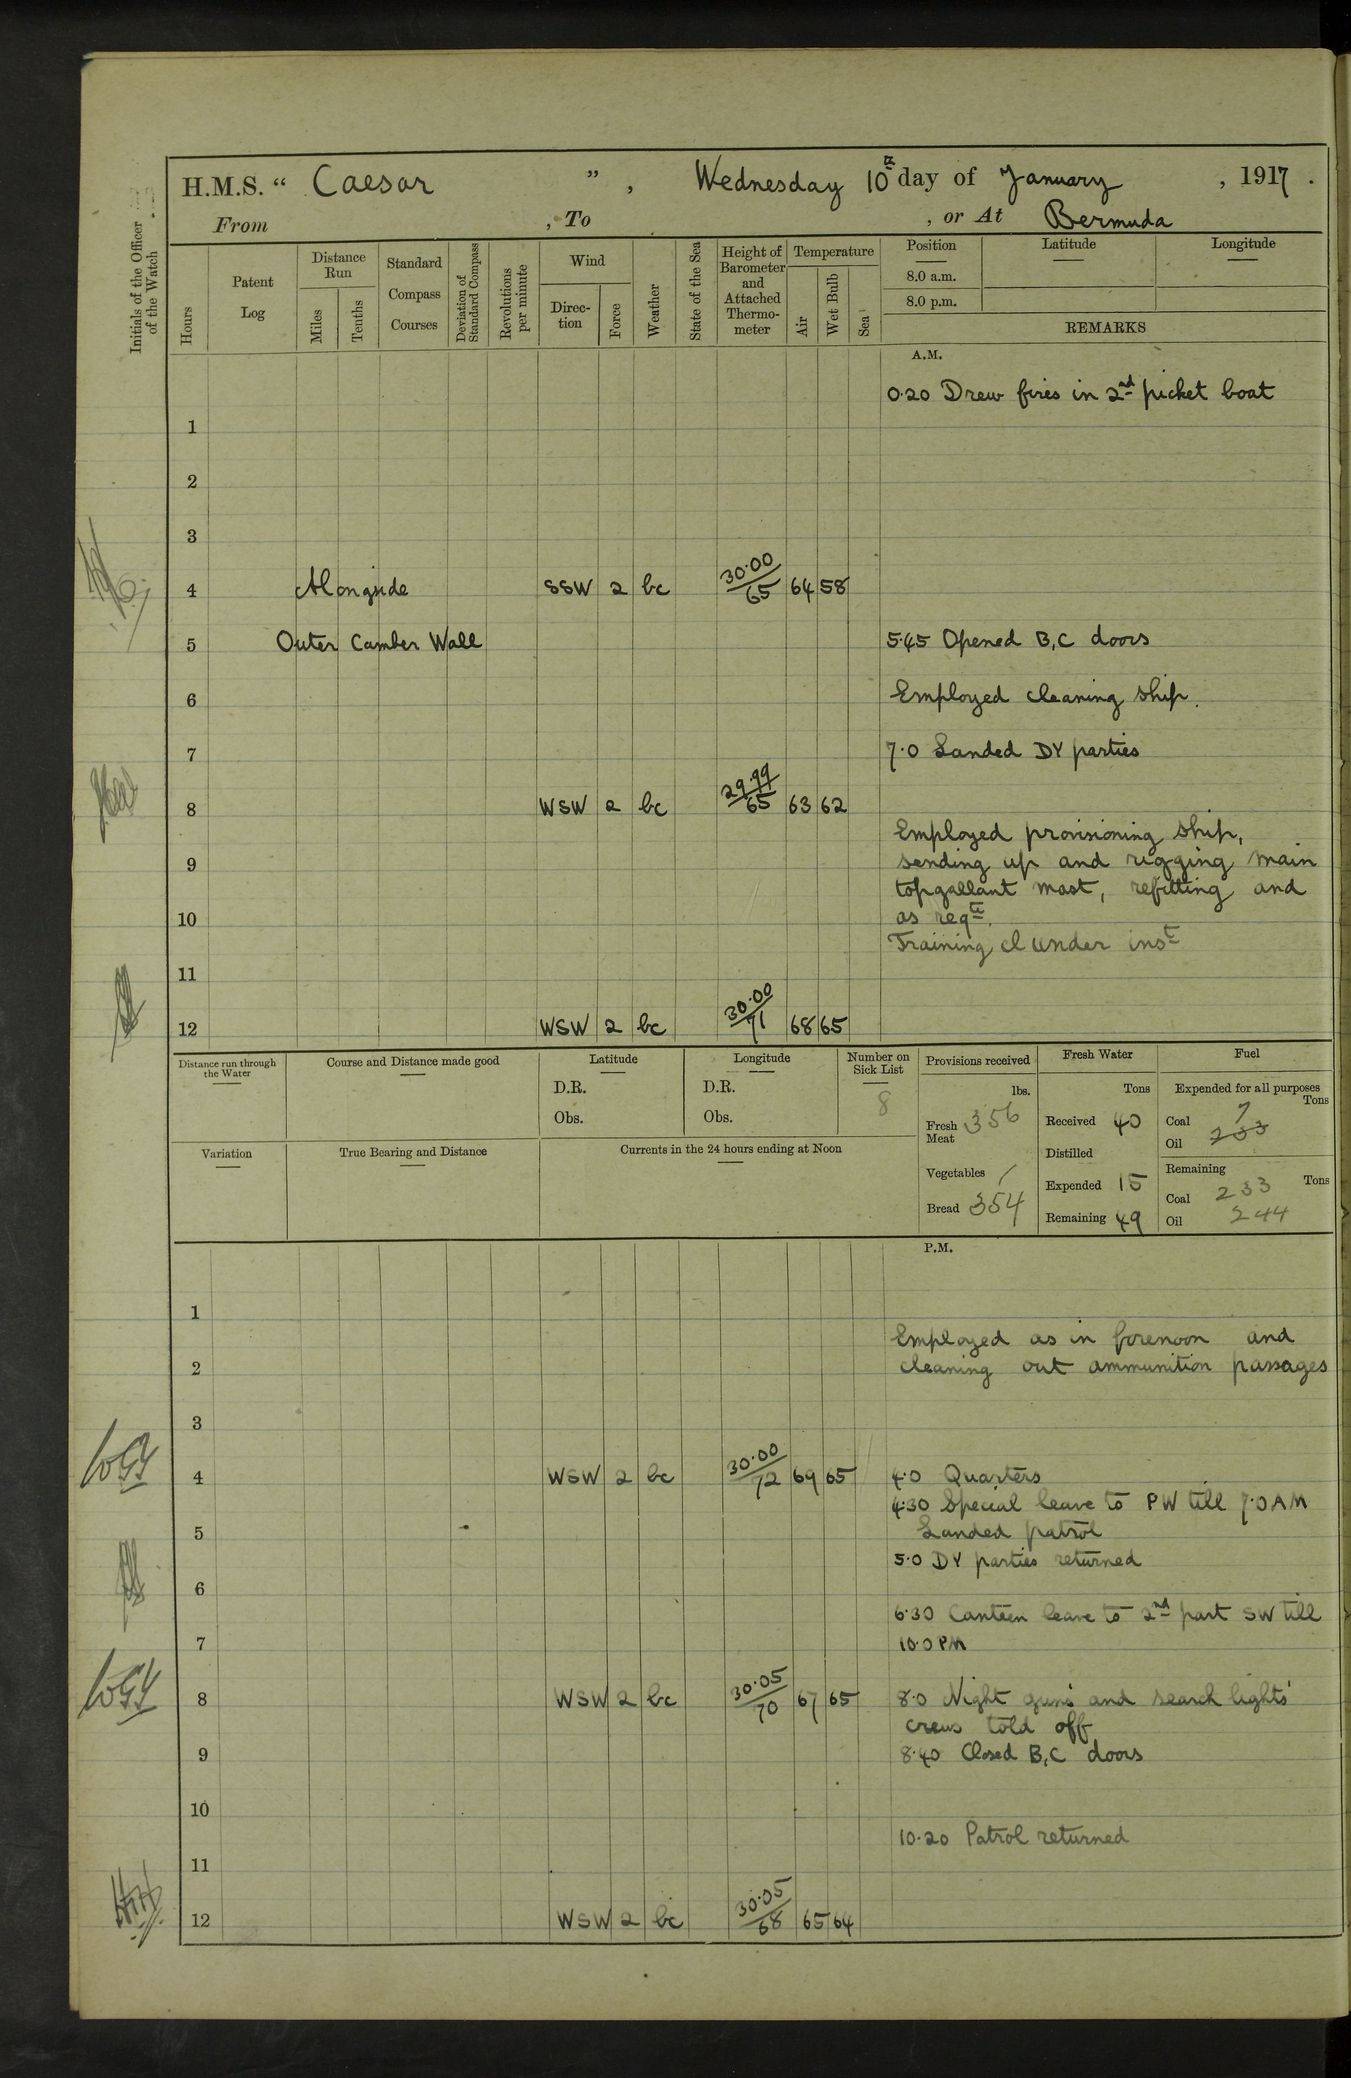 H.M.S. “ Caesar ” , Wednesday 10th day of January , 1917 .
From , To , or At Bermuda
Initials of the Officer of the Watch
Hours
Patent Log
Distance Run
Miles
Tenths
Standard Compass Courses
Deviation of Standard Compass
Revolutions per minute
Wind
Direc-tion
Force
Weather
State of the Sea
Height of Barometer and Attached Thermo-meter
Temperature
Air
Wet Bulb
Sea
Position
8.0 a.m.
8.0 p.m.
Latitude
Longitude
REMARKS
A.M.
0.20 Drew fires in 2nd picket boat
1
2
3
4 Alongside SSW 2 bc 30.00/65 64 58
5 Outer Camber Wall 5.45 Opened B,C doors
6 Employed cleaning ship.
7 7.0 Landed DY parties
8 WSW 2 bc 29.99/65 63 62
Employed provisioning ship,
9 sending up and rigging main
topgallant mast, refitting and
10 as reqte.
Training cl under inst
11
12 WSW 2 bc 30.00/71 68 65
Distance run through the Water
Course and Distance made good
Latitude
D.R.
Obs.
Longitude
D.R.
Obs.
Number on Sick List
8
Variation
True Bearing and Distance
Currents in the 24 hours ending at Noon
Provisions received
lbs.
Fresh Meat 356
Vegetables /
Bread 354
Fresh Water
Tons
Received 40
Distilled
Expended 15
Remaining 49
Fuel
Expended for all purposes
Tons
Coal 7
Oil 233
Remaining
Tons
Coal 233
Oil 244
P.M.
1
Employed as in forenoon and
2 cleaning out ammunition passages
3
4 WSW 2 bc 30.00/72 69 65 4.0 Quarters
4.30 Special leave to PW till 7.0 AM
5 Landed patrol
5.0 DY parties returned
6
6.30 Canteen leave to 2nd part SW till
7 10.0 PM
8 WSW 2 bc 30.05/70 67 65 8.0 Night guns' and search lights'
crews told off
9 8.40 Closed B,C doors
10
10.20 Patrol returned
11
12 WSW 2 bc 30.05/68 65 64